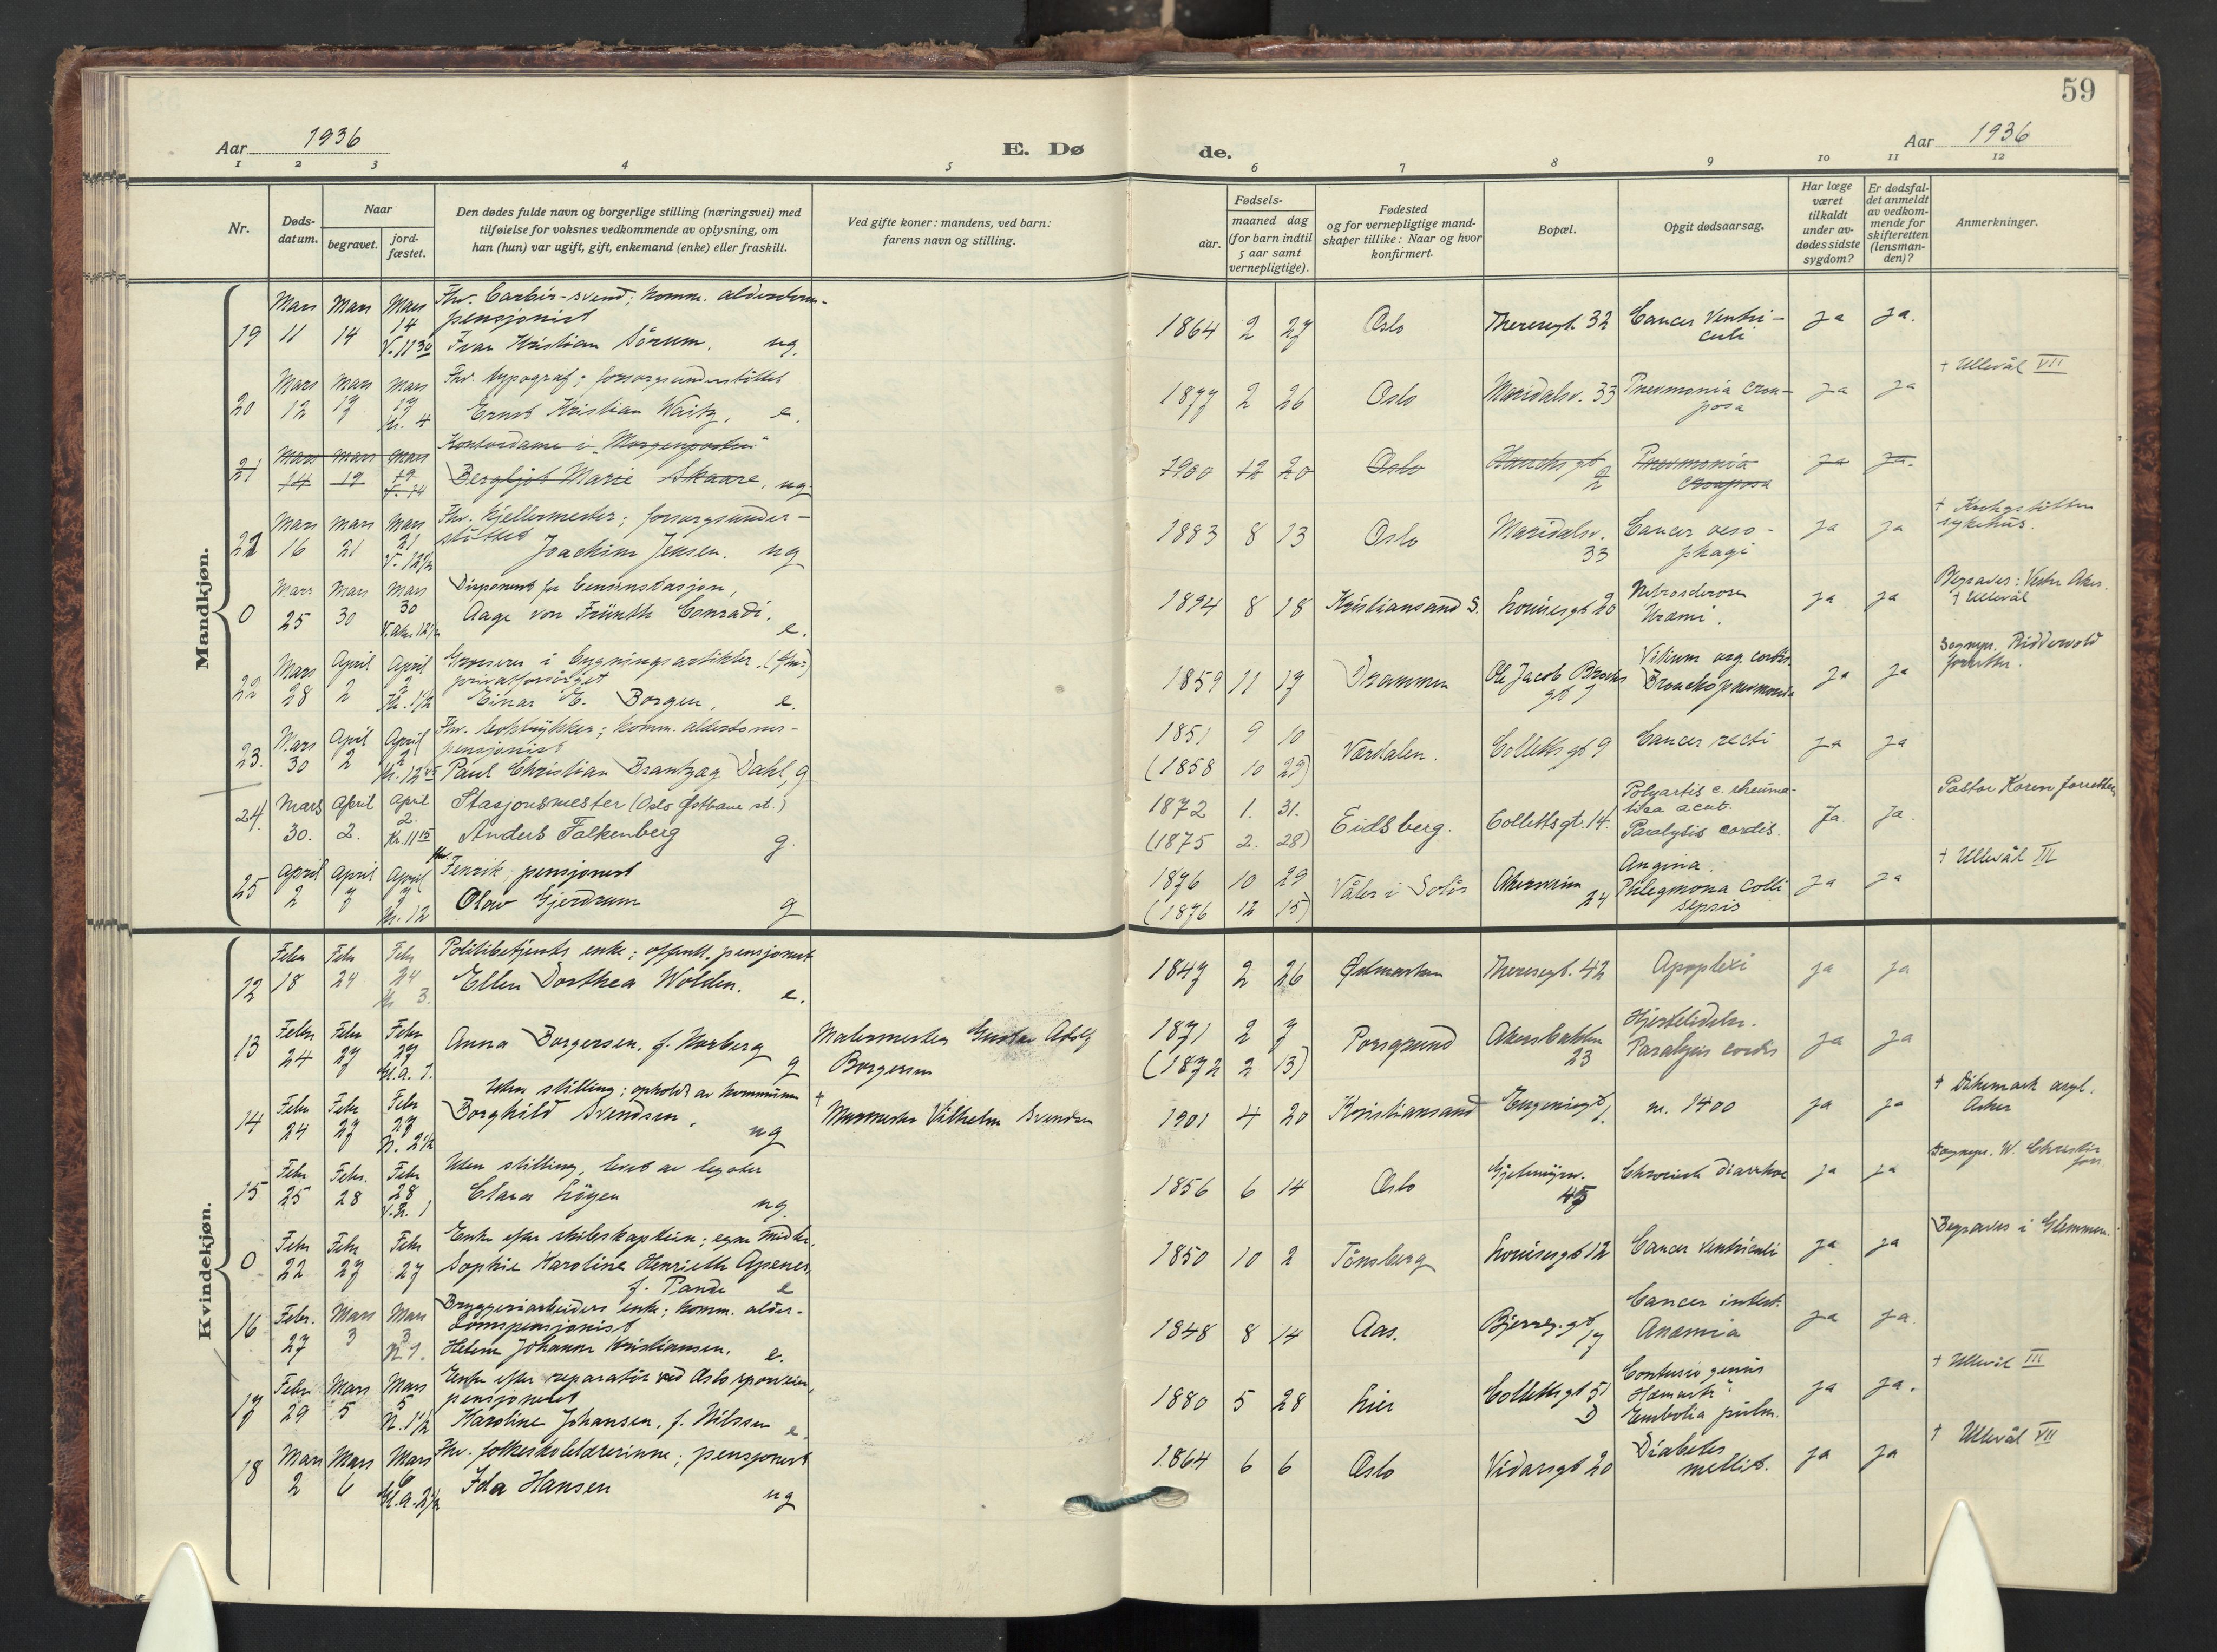 59
Aar 1936
E. Døde.
Aar 1936
1 2 3 4 5 6 7 8 9 10 11 12
Nr.
Døds-datum.
Naar
begravet.
jord-fæstet.
Den dødes fulde navn og borgerlige stilling (næringsvei) med
tilføielse for voksnes vedkommende av oplysning, om
han (hun) var ugift, gift, enkemand (enke) eller fraskilt.
Ved gifte koner: mandens, ved barn:
farens navn og stilling.
Fødsels-
aar. maaned dag
(for barn indtil
5 aar samt
vernepligtige).
Fødested
og for vernepligtige mand-
skaper tillike: Naar og hvor
konfirmert.
Bopæl.
Opgit dødsaarsag.
Har læge
været
tilkaldt
under av-
dødes sidste
sygdom?
Er dødsfal-
det anmeldt
av vedkom-
mende for
skifteretten
(lensman-
den)?
Anmerkninger.
Mandkjøn.
19 Mars 11 Mars 14 Mars 14 V. 11 30
Fhv. barbér-svend; komm. alderdoms-
pensjonist
Ivar Kristian Sörum. ug.
1864 2 27 Oslo Theresegt. 32 Cancer Ventri-
culi ja ja.
20 Mars 12 Mars 17 Mars 17 Kr. 4
Fhv. typograf; forsorgsunderstöttet
Ernst Kristian Waitz, e.
1877 2 26 Oslo Maridalsv. 33 Pneumonia crou-
posa ja ja † Ullevål VII
21 Mars 14 Mars 19 Mars 19
Kontordame i "Morgenposten"
Bergljot Marie Skaare, ug.
1900 12 20 Oslo Pneumonia
crouposa ja ja.
22 Mars 16 Mars 21 Mars 21 V. 12 1/2
Fhv. Kjellermester; forsorgsunder-
stöttet
Joachim Jensen. ug
1883 8 13 Oslo Maridalsv.
33 Cancer oeso-
phagi ja ja † Krohgstötten
sykehus.
0 Mars 25 Mars 30 Mars 30 V. Aker 12 1/2
Disponent for bensinstasjon,
Aage von Frünth Conradi. e.
1894 8 18 Kristiansand S. Louisesgt 20 Nefrosclerosen
Uræmi. ja ja Begraves: Vestre Aker.
† Ullevål
22 Mars 28 April 2 April 2 Kr. 1 1/2
Grosserer i bygningsartikler. (fhv.)
privatforsörget
Einar E. Borgen, e.
1859 11 17 Drammen Ole Jacob Brochs
gt 7 Vitium org. cordis.
Bronchopneumonia ja ja Sognepr. Riddervold
forretter.
23. Mars 30 April 2 April 2 Kr. 12 45
Fhv. boktrykker; komm. alderdoms-
pensjonist
Paul Christian Brantzæg Dahl, g
1851 9 10
(1858 10 29) Værdalen. Colletts gt 9 Cancer recti ja ja
24. Mars 30. April 2. April 2. Kr. 11 15
Stasjonsmester (Oslo Østbane st.)
Anders Falkenberg g.
1872 1. 31.
(1875 2. 28) Eidsberg. Collettsgt. 14. Polyartis c. rheuma-
tica acut.
Paralysis cordis. Ja Ja. Pastor Koren forretter
25 April 2 April 7 April 7 Kr. 12
fhv. Fenrik; pensjonert
Olav Gjerdrum g
1876 10 29
(1876 12 15) Våler i Solör Akersveien
24 Angina.
Phlegmona colli
sepsis ja ja † Ullevål III
Kvindekjøn.
12 Febr 18 Febr 24 Febr 24 Kr 3.
Politibetjents enke; offentl. pensjonist
Ellen Dorthea Wolden. e.
1847 2 26 Ødmarken Theresegt. 42 Apoplexi ja ja
13 Febr 24 Febr 27 Febr 27 Gl. a. 1.
Anna Borgersen. f. Norberg g
Malermester Gustav Adolf
Borgersen
1871 2 7
(1872 2 3) Porsgrund Akersbakken
23 Hjertelidelse.
Paralysis cordis ja ja
14 Febr 24 Febr 27 Febr 27 N. 2 1/2
Uten stilling; opholdt av kommunen
Borghild Svendsen, ug
† Murmester Vilhelm Svendsen
1901 4 20 Kristiansand Eugeniesgt. 1. nr. 1400 ja ja † Dikemark asyl.
Asker
15 Febr 25 Febr. 28 Febr 28
Uten stilling, levet av legater
Clara Löyen ug.
1856 6 14 Oslo Gjetemyrsv.
45 Chronisk Diarrhoe ja ja Sognepr. W. Christie
forr.
0 Febr 22 Febr 27 Febr 27
Enke efter skibskaptein; egne midler.
Sophie Karoline Henriette Apenes.
f. Pande e
1850 10 2 Tönsberg Louisesgt 12 Cancer Ventriculi ja ja Begraves i Glemmen.
16 Febr. 27 Mars 3 Mars 3 N 1.
Bryggeriarbeiders enke; komm. alder-
domspensjonist
Helene Johanne Kristiansen. e.
1848 8 14 Aas. Bjerreg. gt
17 Cancer intest.
Anæmia ja ja.
17 Febr 29 Mars 5 Mars 5 N. 1 1/2
Enke efter reparatör ved Oslo sporveier,
pensjonert
Karoline Johansen, f. Nilssen e.
1880 5 28 Lier Collettsgt 51
D Contusio genus
Hæmarth.
Embolia pulm. ja ja. † Ullevål III
18 Mars 2 Mars 6 Mars 6 Gl. a. 2 1/2
Fhv. folkeskolelærerinne; pensjonert
Ida Hansen ug
1864 6 6 Oslo Vidarsgt 20 Diabetes
mellit. ja ja † Ullevål VII